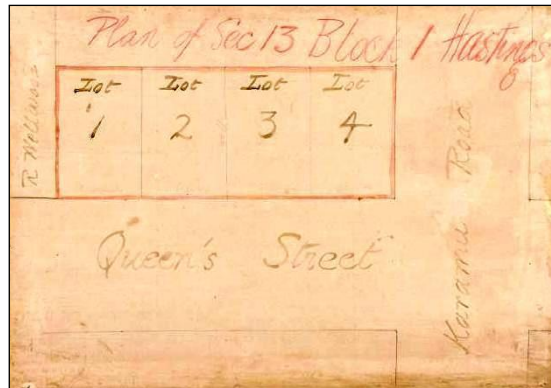 Plan of Sec 13 Block 1 Hastings
R Wellwood
Lot Lot Lot Lot
1 2 3 4
Queen's Street
Karamu Road